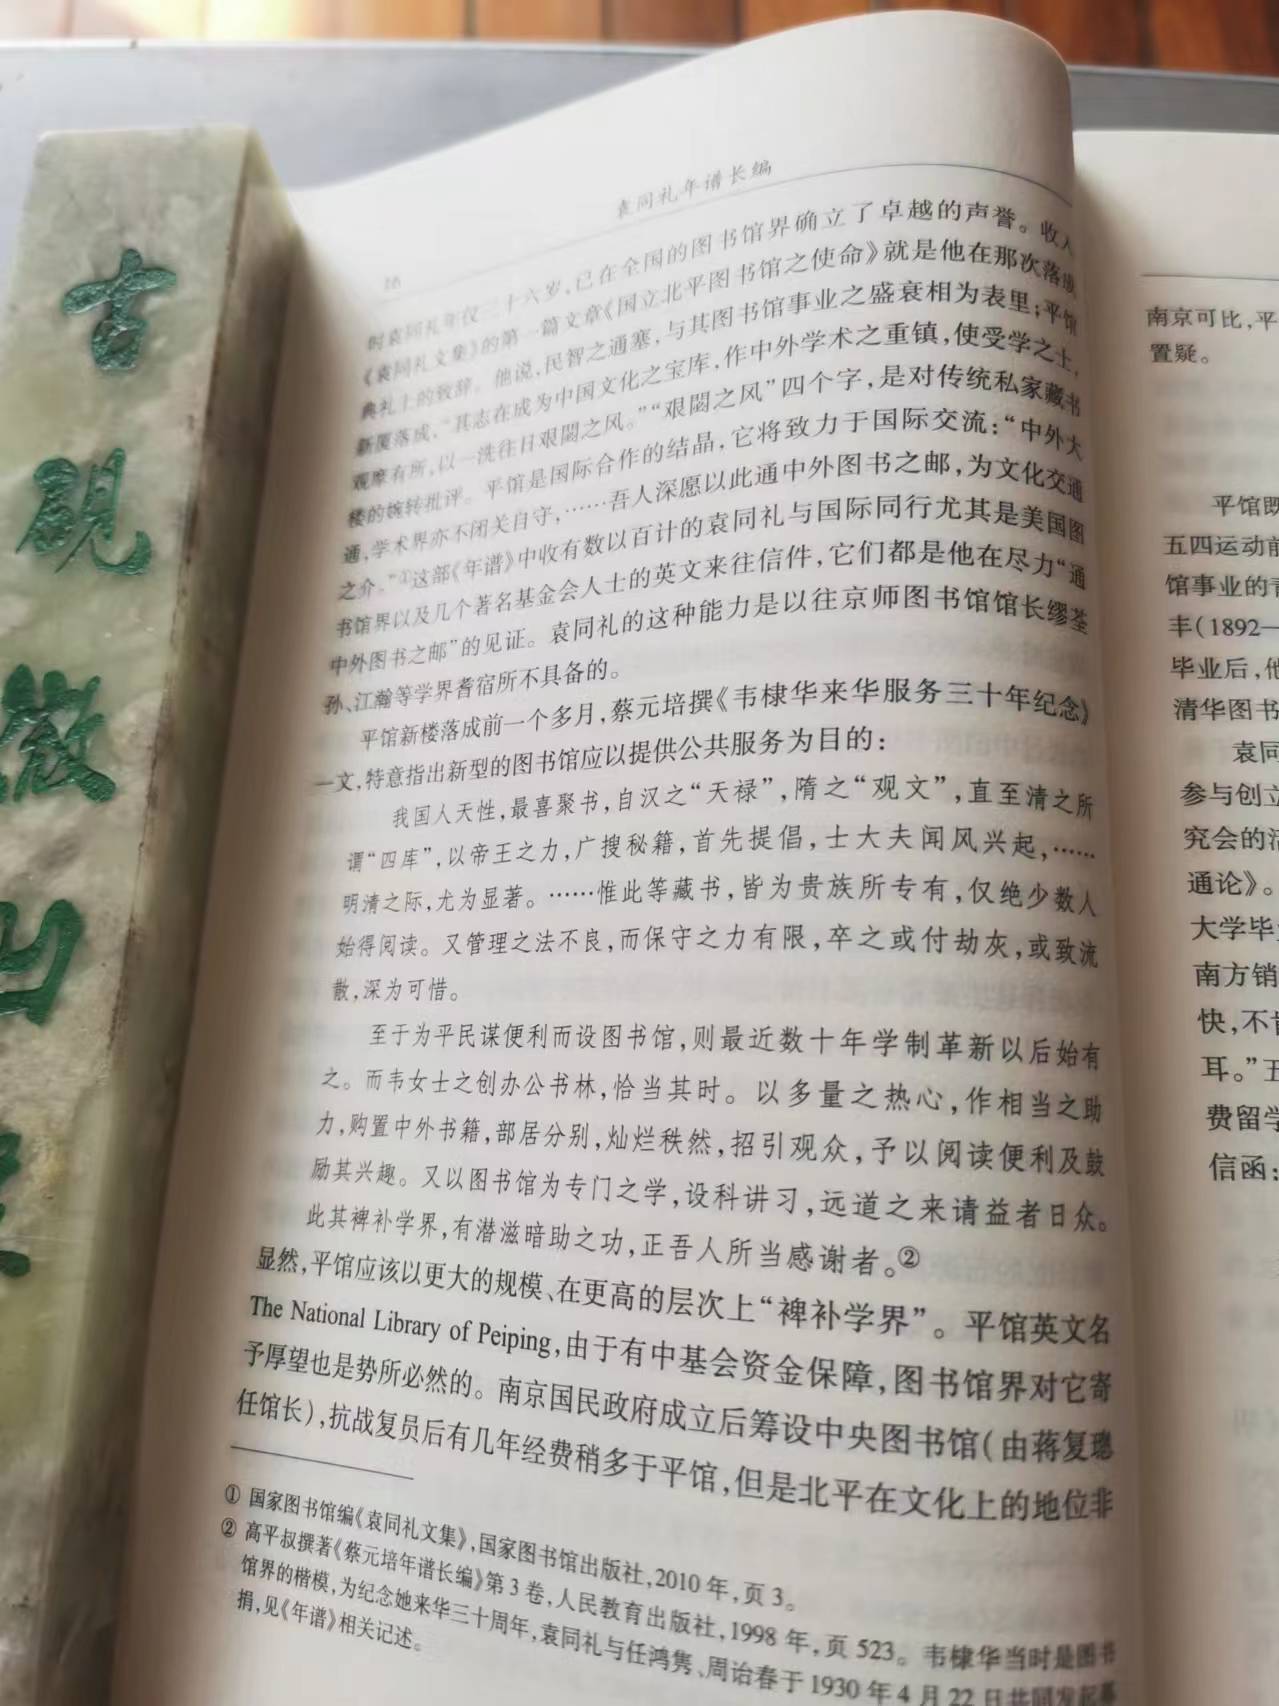 古
砚
微
凹
袁同礼年谱长编
16
时袁同礼年仅三十六岁，已在全国的图书馆界确立了卓越的声誉。收入
《袁同礼文集》的第一篇文章《国立北平图书馆之使命》就是他在那次落成
典礼上的致辞。他说，民智之通塞，与其图书馆事业之盛衰相为表里；平馆
新厦落成，“其志在成为中国文化之宝库，作中外学术之重镇，使受学之士，
观摩有所，以一洗往日艰閟之风。”“艰閟之风”四个字，是对传统私家藏书
楼的婉转批评。平馆是国际合作的结晶，它将致力于国际交流：“中外大
通，学术界亦不闭关自守，……吾人深愿以此通中外图书之邮，为文化交通
之介。”①这部《年谱》中收有数以百计的袁同礼与国际同行尤其是美国图
书馆界以及几个著名基金会人士的英文来往信件，它们都是他在尽力“通
中外图书之邮”的见证。袁同礼的这种能力是以往京师图书馆馆长缪荃
孙、江瀚等学界耆宿所不具备的。
平馆新楼落成前一个多月，蔡元培撰《韦棣华来华服务三十年纪念》
一文，特意指出新型的图书馆应以提供公共服务为目的：
我国人天性，最喜聚书，自汉之“天禄”，隋之“观文”，直至清之所
谓“四库”，以帝王之力，广搜秘籍，首先提倡，士大夫闻风兴起，……
明清之际，尤为显著。……惟此等藏书，皆为贵族所专有，仅绝少数人
始得阅读。又管理之法不良，而保守之力有限，卒之或付劫灰，或致流
散，深为可惜。
至于为平民谋便利而设图书馆，则最近数十年学制革新以后始有
之。而韦女士之创办公书林，恰当其时。以多量之热心，作相当之助
力，购置中外书籍，部居分别，灿烂秩然，招引观众，予以阅读便利及鼓
励其兴趣。又以图书馆为专门之学，设科讲习，远道之来请益者日众。
此其裨补学界，有潜滋暗助之功，正吾人所当感谢者。②
显然，平馆应该以更大的规模、在更高的层次上“裨补学界”。平馆英文名
The National Library of Peiping，由于有中基会资金保障，图书馆界对它寄
予厚望也是势所必然的。南京国民政府成立后筹设中央图书馆（由蒋复璁
任馆长），抗战复员后有几年经费稍多于平馆，但是北平在文化上的地位非
① 国家图书馆编《袁同礼文集》，国家图书馆出版社，2010年，页3。
② 高平叔撰著《蔡元培年谱长编》第3卷，人民教育出版社，1998年，页523。韦棣华当时是图书
馆界的楷模，为纪念她来华三十周年，袁同礼与任鸿隽、周诒春于1930年4月22日共同发起募
捐，见《年谱》相关记述。
南京可比，平
置疑。
平馆既
五四运动前
馆事业的
丰（1892—
毕业后，他
清华图书
袁同
参与创立
究会的
通论》。
大学毕
南方销
快，不
耳。”五
费留学
信函：